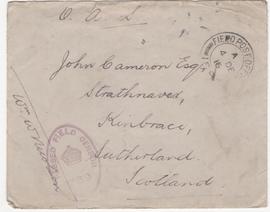 O. A. S.
FIELD POST OFFICE
4 DE
John Cameron Esqr
Strathnaver,
Kinbrace,
Sutherland
Scotland.
PASSED FIELD CENSOR